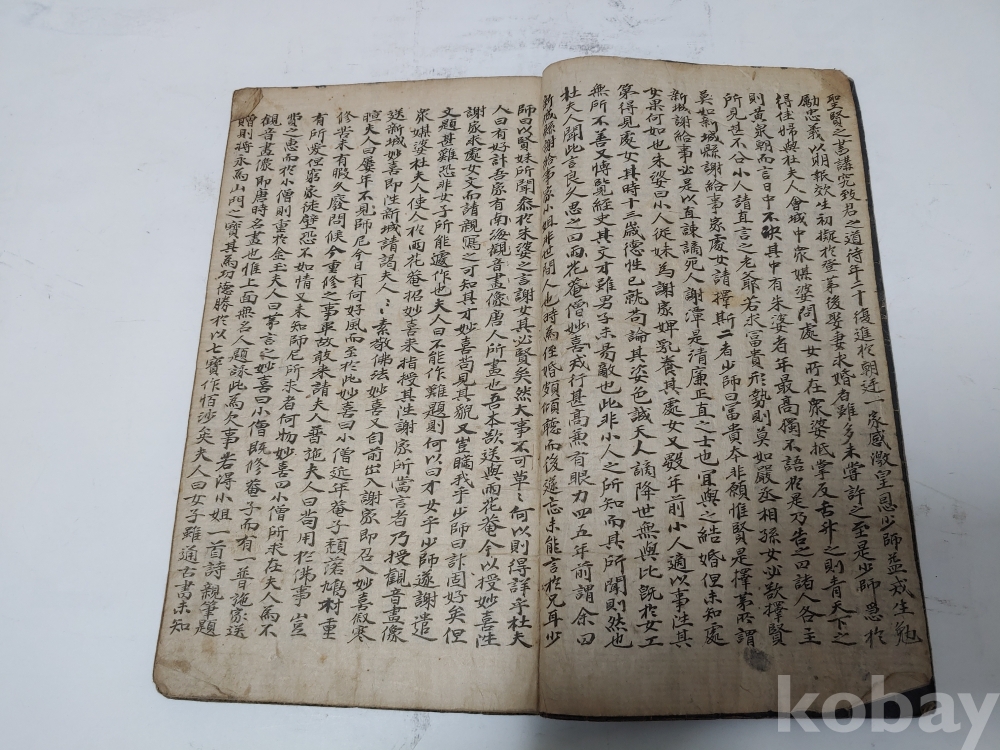 聖賢之書講究致君之道待年二十復進於朝廷一家感激皇恩少師益戒生勉
勵忠義以明報效生初擬於登第後娶妻求婚者雖多未嘗許之至是少師思於
得佳婦與杜夫人會城中衆媒婆問處女所在衆婆抵掌反舌升之則青天下之
則黃泉朝而言日中不決其中有朱婆者年最高獨不語於是乃告之曰諸人各主
所見甚不公小人請直言之老爺若求冨貴形勢則莫如嚴丞相孫女必欲擇賢
莫如新城縣謝給事家處女請擇斯二者少師曰冨貴本非願惟賢是擇第所謂
新城謝給事必是以直諫謫死人謝潭是清廉正直之士也宜與之結婚但未知處
女果何如也朱婆曰小人從妹為謝家婢乳養其處女又數年前小人適以事往其
第得見處女其時十三歲德性已就苟論其姿色誠天人謫降世無與比旣於女工
無所不善又博覽經史其文才雖男子未易敵也此非小人之所知而其所聞則然也
杜夫人聞此言良久思之曰雨花菴僧妙喜戒行甚高兼有眼力四五年前謂余曰
新城縣謝給事家小姐非世間人也時為侄婚頗傾聽而後遂忘未能言於兄耳少
師曰以賢妹所聞叅於朱婆之言謝女其必賢矣然大事不可草〻何以則得詳乎杜夫
人曰有好計吾家有南海觀音畫像唐人所畫也吾本欲送與雨花菴今以授妙喜往
謝家求處女文而請親寫之可知其才妙喜苟見其貌又豈瞞我乎少師曰計固好矣但
文題甚難恐非女子所能遽作也夫人曰不能作難題則何以曰才女乎少師遂謝遣
衆媒婆杜夫人使人於雨花菴招妙喜來指授其往謝家所當言者乃授觀音畫像
送新城妙喜即往新城請謁夫人〻〻素敬佛法妙喜又自前出入謝家即召入妙喜敍寒
暄夫人曰屢年不見師尼今日有何好風而至於此妙喜曰小僧近年菴子頹落鳩材重
修尝未有暇久廢問候今重修之事畢故敢來請夫人普施夫人曰苟用於佛事豈
有所愛但窮家徒壁恐不如情又未知師尼所求者何物妙喜曰小僧所求在夫人為不
費之惠而於小僧則重於金玉夫人曰第言之妙喜曰小僧既修菴子而有一普施家送
觀音畫像即唐時名畫也惟上面無名人題詠此為欠事若得小姐一首詩親筆題
贈則將永為山門之寶其為功德勝於以七寶作恒沙矣夫人曰女子雖通古書未知
kobay